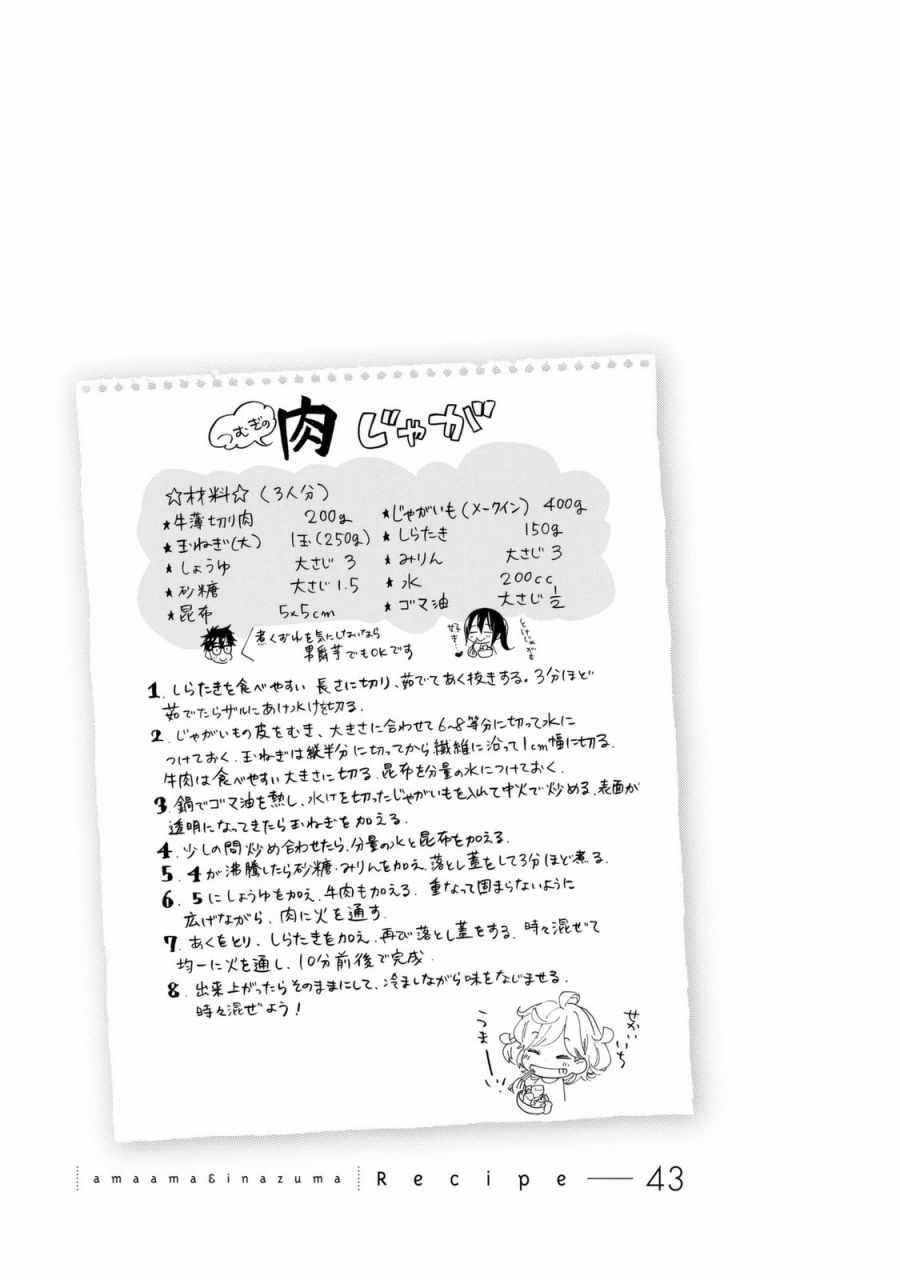 つむぎの
肉じゃが
☆材料☆(3人分)
★牛薄切り肉 200g
★玉ねぎ(大) 1玉(250g)
★しょうゆ 大さじ 3
★砂糖 大さじ 1.5
★昆布 5×5cm
★じゃがいも(メークイン) 400g
★しらたき 150g
★みりん 大さじ 3
★水 200cc
★ゴマ油 大さじ 1/2
煮くずれを気にしないなら
男爵芋でもOKです
好き
とけじゃがも
1. しらたきを食べやすい長さに切り、茹でてあく抜きする。3分ほど
茹でたらザルにあけ水けを切る.
2. じゃがいもの皮をむき、大きさに合わせて6〜8等分に切って水に
つけておく.玉ねぎは縦半分に切ってから繊維に沿って1cm幅に切る.
牛肉は食べやすい大きさに切る.昆布を分量の水につけておく.
3. 鍋でゴマ油を熱し、水けを切ったじゃがいもを入れて中火で炒める.表面が
透明になってきたら玉ねぎを加える.
4. 少しの間炒め合わせたら、分量の水と昆布を加える.
5. 4が沸騰したら砂糖・みりんを加え、落とし蓋をして3分ほど煮る.
6. 5にしょうゆを加え、牛肉も加える. 重なって固まらないように
広げながら、肉に火を通す.
7. あくをとり、しらたきを加え、再び落とし蓋をする.時々混ぜて
均一に火を通し、10分前後で完成.
8. 出来上がったらそのままにして、冷ましながら味をなじませる.
時々混ぜよう!
せかいいち
うまーい
amaama&inazuma Recipe — 43